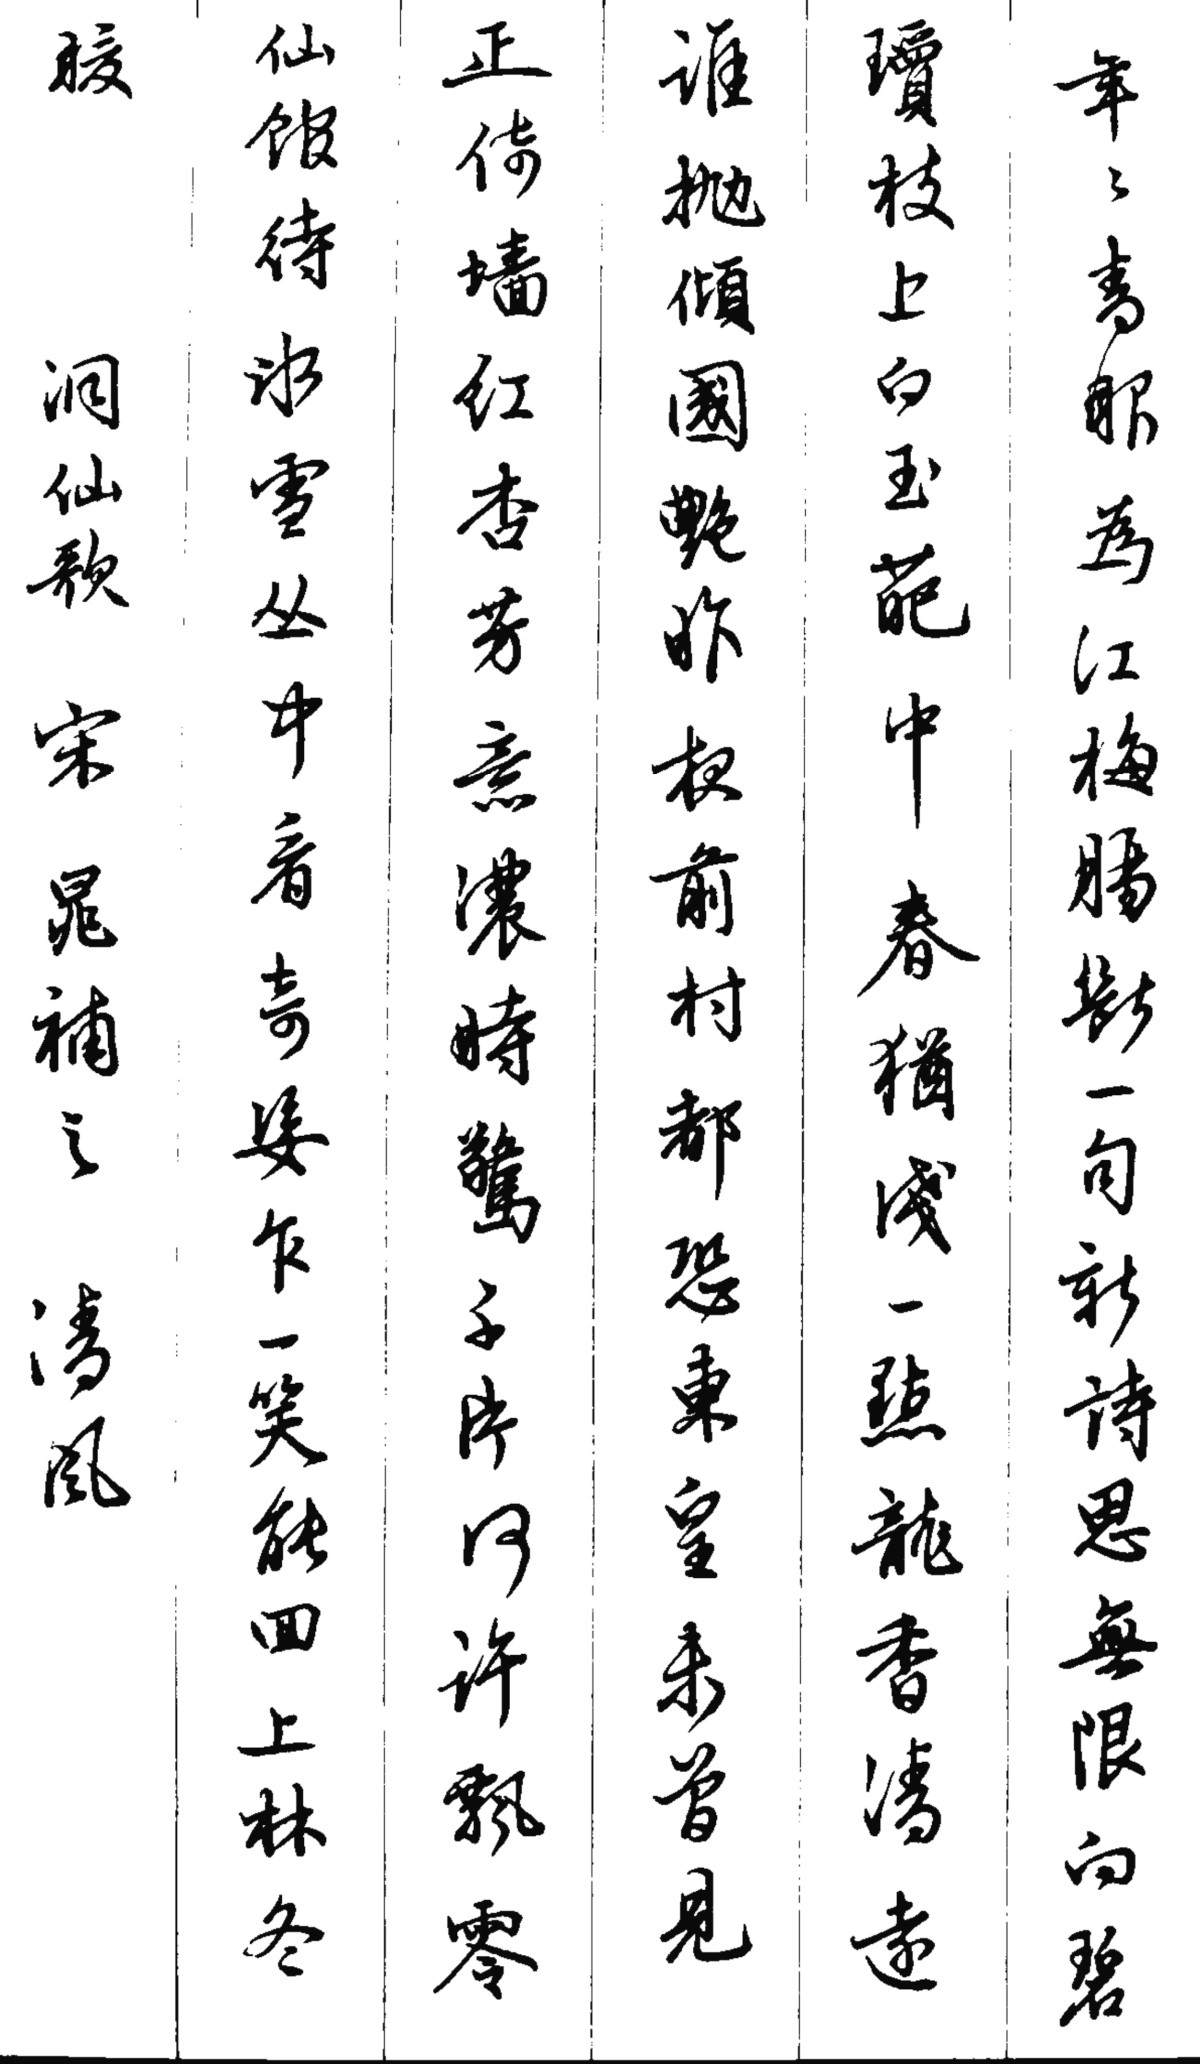 年々青眼為江梅腸斷一句新詩思無限向碧
瓊枝上白玉葩中春猶淺一點龍香清遠
誰拋傾國艷昨夜前村都恐東皇未曾見
正倚墻紅杏芳意濃時驚千片何許飄零
仙館待冰雪丛中看奇姿乍一笑能回上林冬
暖 洞仙歌 宋 晁補之 清風